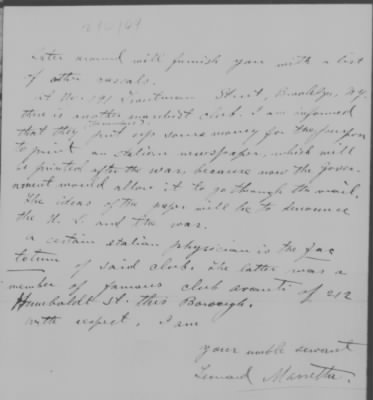 Later around will furnish you with a list
of other rascals.
At No. 191 Troutman Street, Brooklyn, N.Y.
there is another anarchist club. I am informed
that they put up some money for the purpose
to print an Italian newspaper, which will
be printed after the war, because now the Gover-
nment would allow it to go through the mail.
The ideas of the paper will be to denounce
the U. S. and the war.
A certain Italian physician is the fac
totum of said club. The latter was a
member of famous club Avanti of 212
Humboldt St. this Borough.
With respect, I am
your humble servant
Leonard